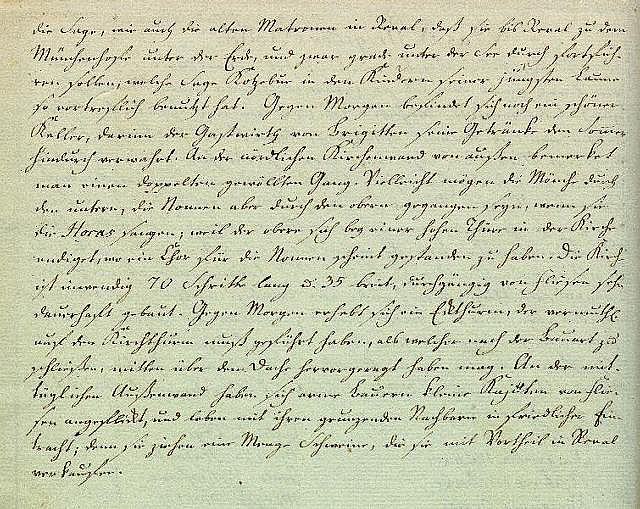 die Sage, wie auch die alten Matronen in Reval, daß sie bis Reval zu dem
Münchenhofe unter der Erde, und zwar grade unter der See durch fortfüh-
ren sollen, welche Sage Kotzebue in den Kindern seiner jüngsten Laune
so vortreflich benutzt hat. Gegen Morgen befindet sich noch ein schöner
Keller, darinn der Gastwirth von Brigitten seine Getränke den Sommer
hindurch verwahrt. An der nördlichen Kirchenwand von außen bemerket
man einen doppelten gewölbten Gang. Vielleicht mögen die Mönche durch
den untern, die Nonnen aber durch den obern gegangen seyn, wenn sie
die Horas sangen; weil der obere sich bey einer hohen Thüre in der Kirche
endiget, wo ein Chor für die Nonnen scheint gestanden zu haben. Die Kirch
ist inwendig 70 Schritte lang u. 35 breit, durchgängig von Fliesen sehr
dauerhaft gebaut. Gegen Morgen erhebt sich ein Ekthurm, der vermuthl.
auf den Kirchthurm muß geführt haben, als welcher nach der Bauart zu
schließen, mitten über dem Dache hervorgeragt haben mag. An der mit-
täglichen Außenwand haben sich arme Bauern kleine Kajüten von Flie-
sen angeflikt, und leben mit ihren grunzenden Nachbarn in friedlicher Ein-
tracht; denn sie ziehen eine Menge Schweine, die sie mit Vortheil in Reval
verkaufen.